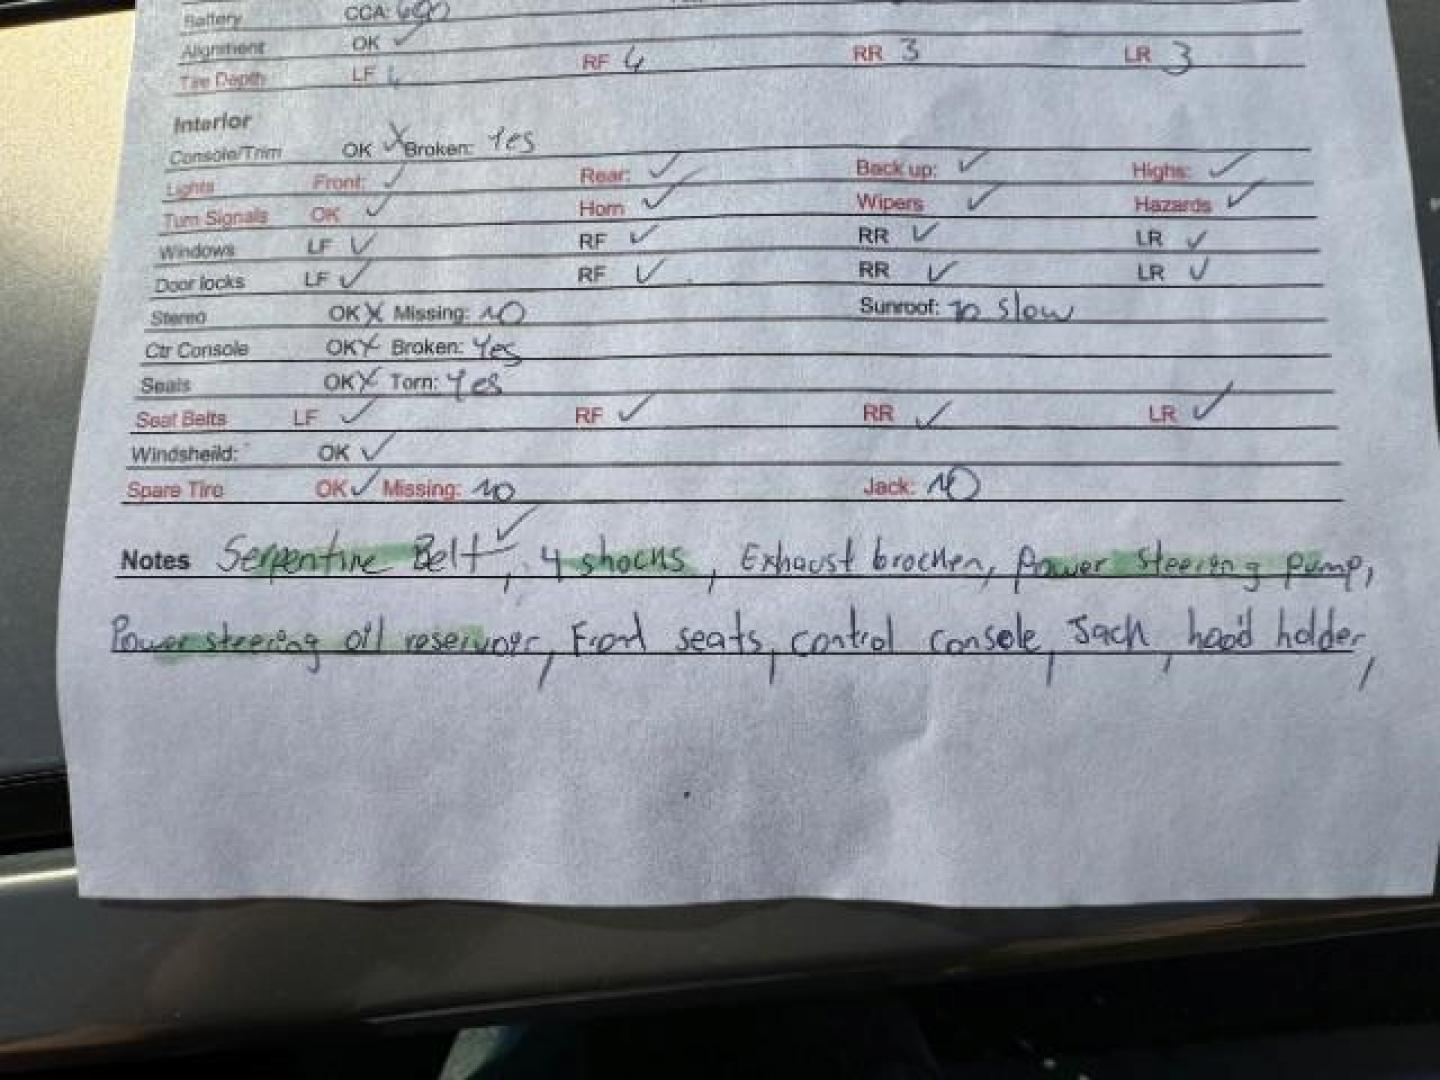 Battery CCA: 690
Alignment OK ✓
Tire Depth LF RF 4 RR 3 LR 3
Interior
Console/Trim OK X Broken: Yes
Lights Front: ✓ Rear: ✓ Back up: ✓ Highs: ✓
Turn Signals OK ✓ Horn ✓ Wipers ✓ Hazards ✓
Windows LF ✓ RF ✓ RR ✓ LR ✓
Door locks LF ✓ RF ✓ RR ✓ LR ✓
Stereo OK X Missing: NO Sunroof: slow
Ctr Console OK X Broken: Yes
Seats OK X Torn: Yes
Seat Belts LF ✓ RF ✓ RR ✓ LR ✓
Windsheild: OK ✓
Spare Tire OK ✓ Missing: NO Jack: NO
Notes Serpentine Belt ✓, 4 shocks, Exhaust brocken, Power steering pump,
Power steering oil reservoir, Front seats, control console, Jack, hood holder,